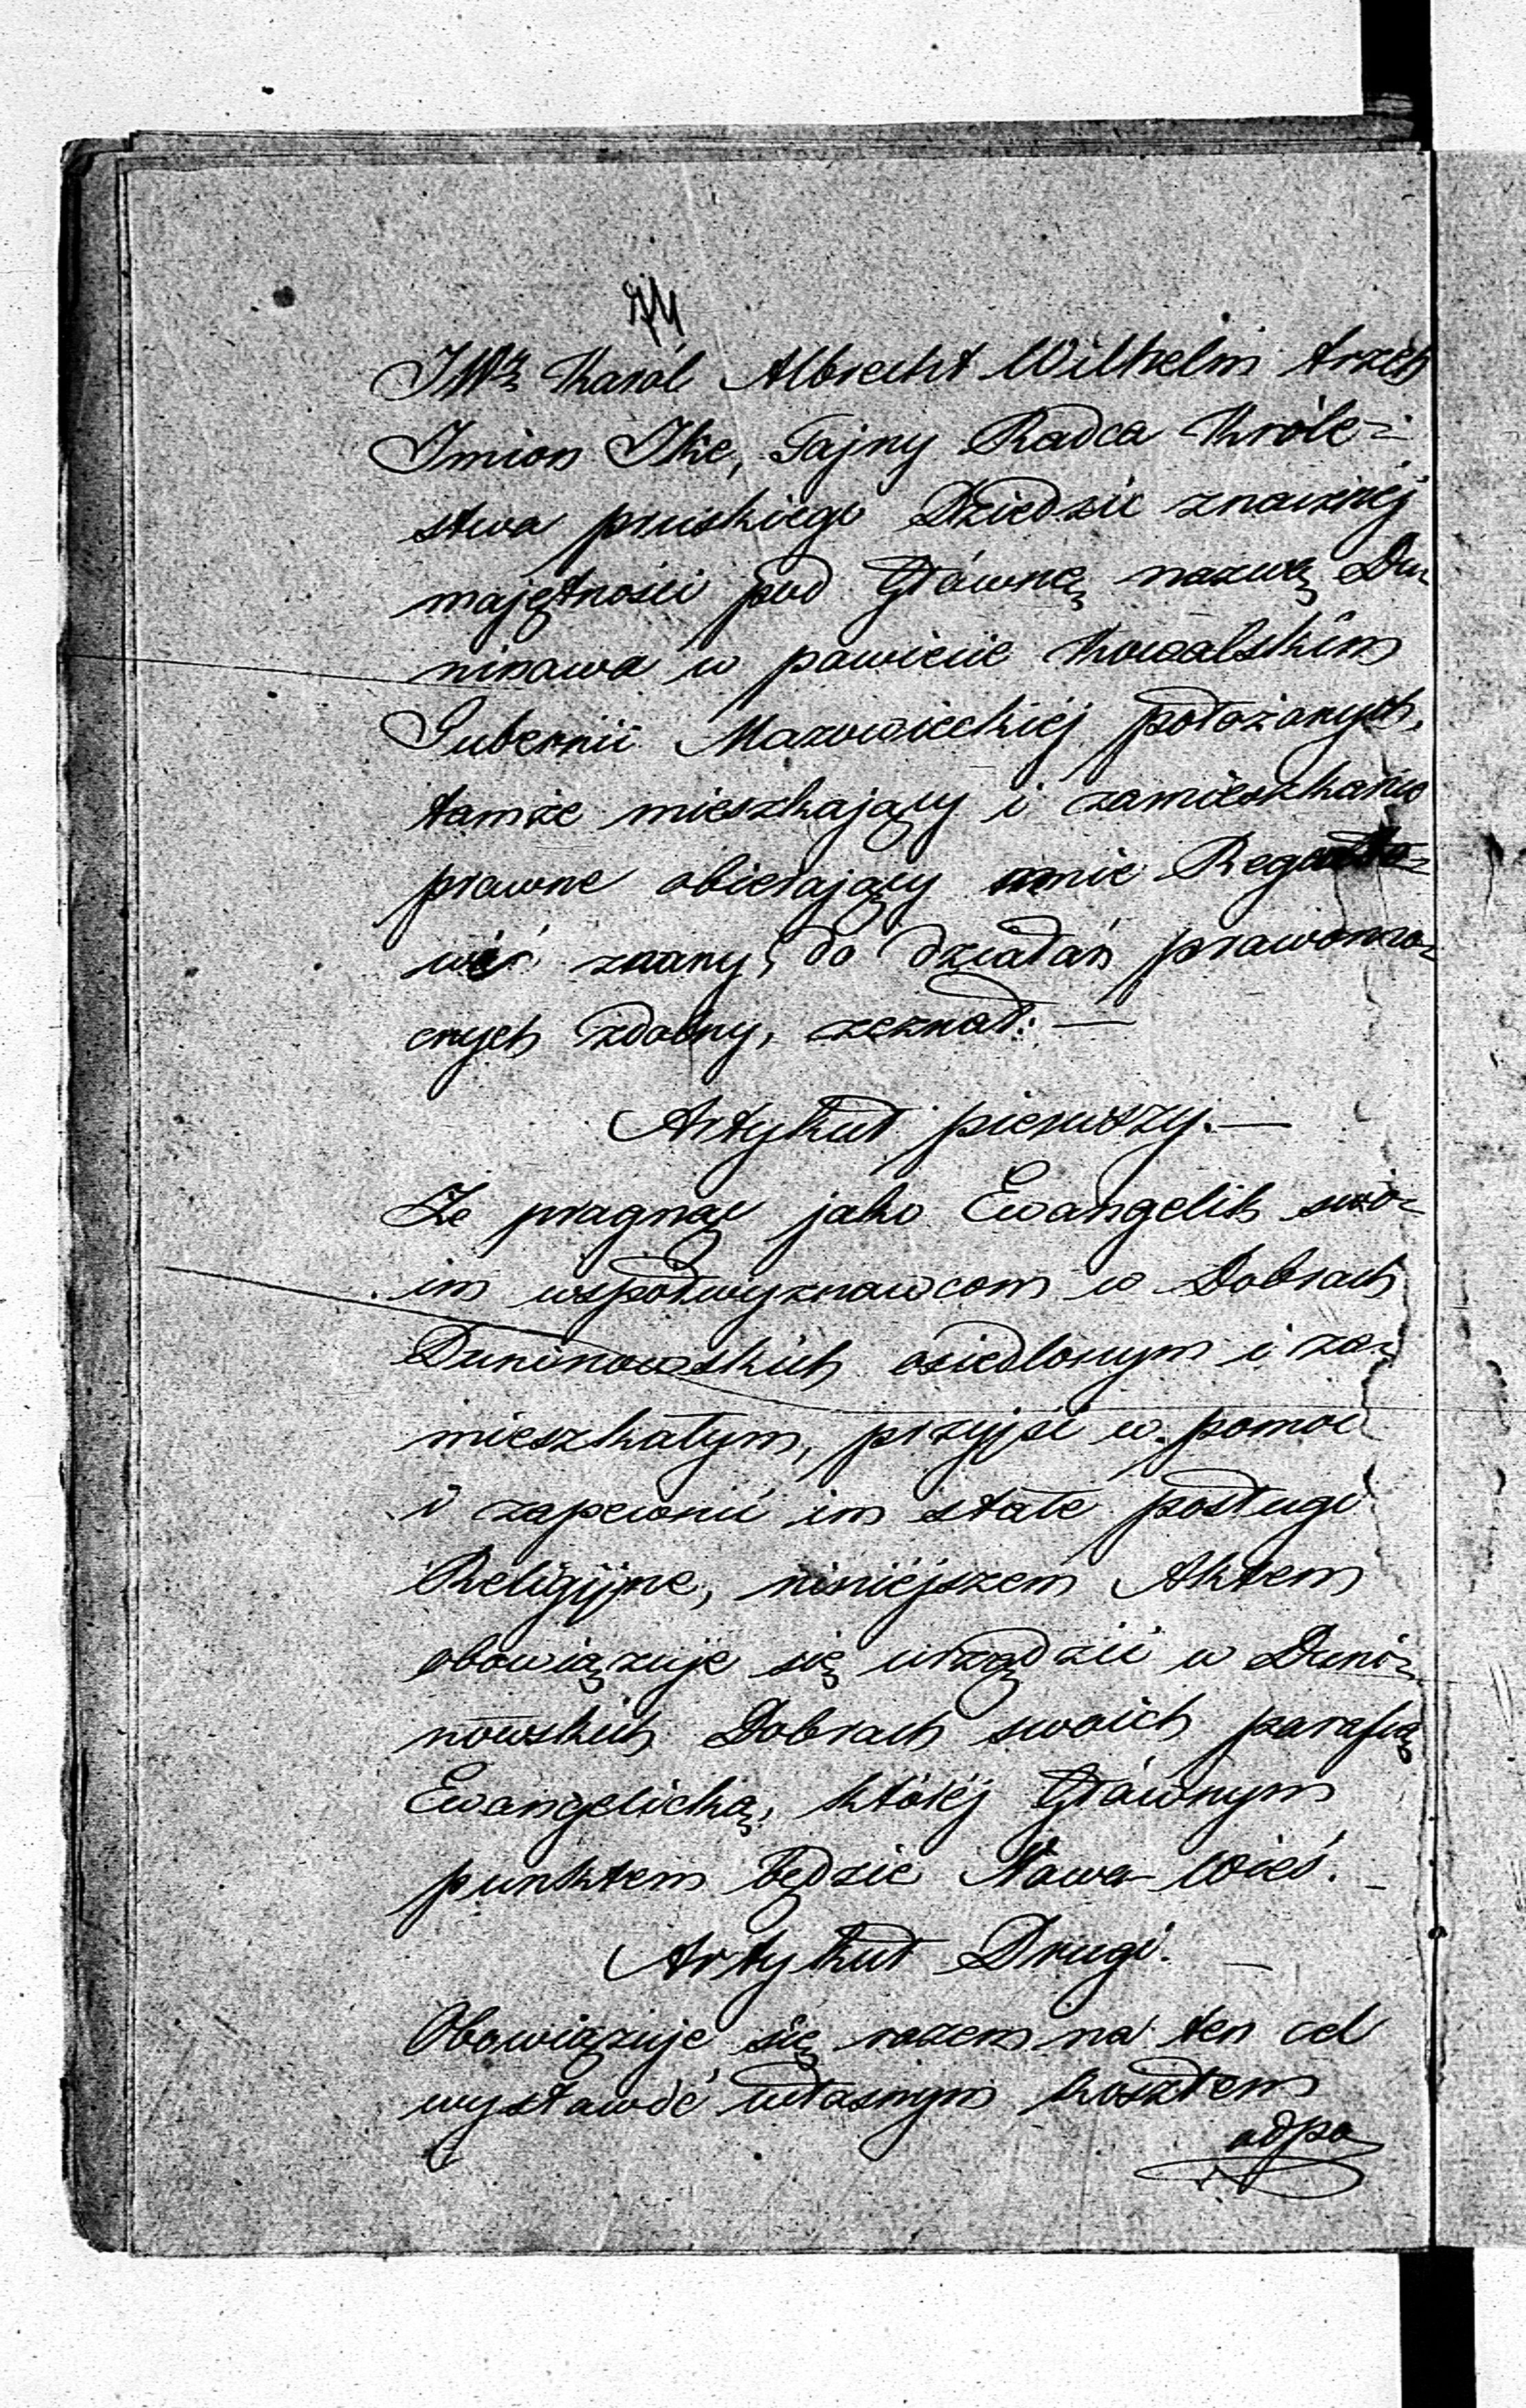 74
JWy Karól Albrecht Wilhelm trzech
Imion Ike, Tajny Radca Króle-
stwa pruskiego Dziedzic znacznéj
majętności pod Główną nazwą Du-
ninowa w powiecie Kowalskim
Gubernii Mazowieckiéj położonych,
tamże mieszkający i zamieszkanie
prawne obierający mnie
znany, do działań prawomo-
cnych zdolny, zeznał: —
Artykuł pierwszy. —
Że pragnąc jako Ewangelik swo-
im współwyznawcom w Dobrach
Duninowskich osiedlonym i za-
mieszkałym, przyjść w pomoc
i zapewnić im stałe posługi
Religijne, niniéjszem Aktem
obowiązuje się urządzić w Duni-
nowskich Dobrach swoich parafią
Ewangelicką, któréj Głównym
punktem będzie Nowa-Wieś. —
Artykuł Drugi. —
Obowiązuje się razem na ten cel
wystawić własnym kosztem
odpo